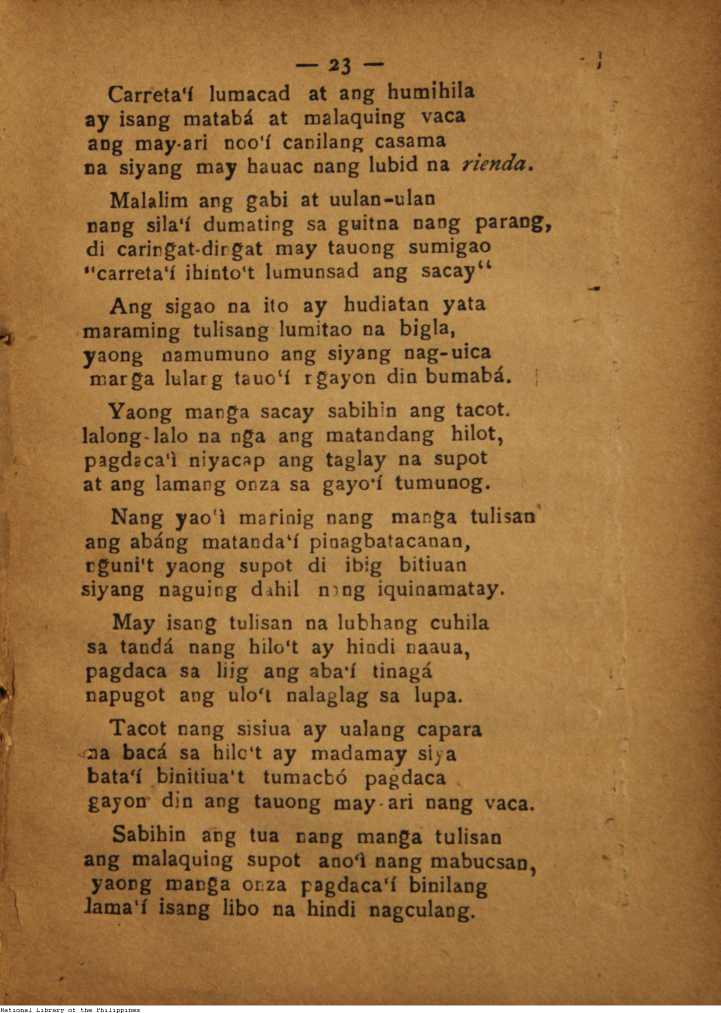 — 23 —
Carreta'í lumacad at ang humihila
ay isang matabá at malaquing vaca
ang may-ari noo'í canilang casama
na siyang may hauac nang lubid na rienda.
Malalim ang gabi at uulan-ulan
nang sila'í dumating sa guitna nang parang,
di caringat-dingat may tauong sumigao
"carreta'í ihinto't lumunsad ang sacay"
Ang sigao na ito ay hudiatan yata
maraming tulisang lumitao na bigla,
yaong namumuno ang siyang nag-uica
manga lulang tauo'í ngayon din bumabá.
Yaong manga sacay sabihin ang tacot.
lalong-lalo na nga ang matandang hilot,
pagdaca'ì niyacap ang taglay na supot
at ang lamang onza sa gayo'í tumunog.
Nang yao'ì marinig nang manga tulisan
ang abáng matanda'í pinagbatacanan,
nguni't yaong supot di ibig bitiuan
siyang naguing dahil nang iquinamatay.
May isang tulisan na lubhang cuhila
sa tandá nang hilo't ay hindi naaua,
pagdaca sa liig ang aba'í tinagá
napugot ang ulo't nalaglag sa lupa.
Tacot nang sisiua ay ualang capara
na bacá sa hilo't ay madamay siya
bata'í binitiua't tumacbó pagdaca
gayon din ang tauong may-ari nang vaca.
Sabihin ang tua nang manga tulisan
ang malaquing supot ano'ì nang mabucsan,
yaong manga onza pagdaca'í binilang
lama'í isang libo na hindi nagculang.
National Library of the Philippines